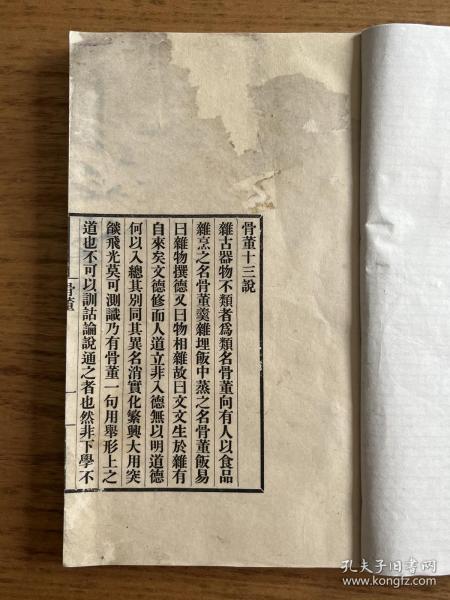 骨董十三說
雜古器物不類者爲類名骨董向有人以食品
雜烹之名骨董羹雜埋飯中蒸之名骨董飯易
曰雜物撰德又曰物相雜故曰文文生於雜有
自來矣文德修而人道立非入德無以明道德
何以入總其別同其異名消實化繁興大用突
燄飛光莫可測識乃有骨董一句用舉形上之
道也不可以訓詁論說通之者也然非下學不
骨董
孔夫子旧书网
www.kongfz.com